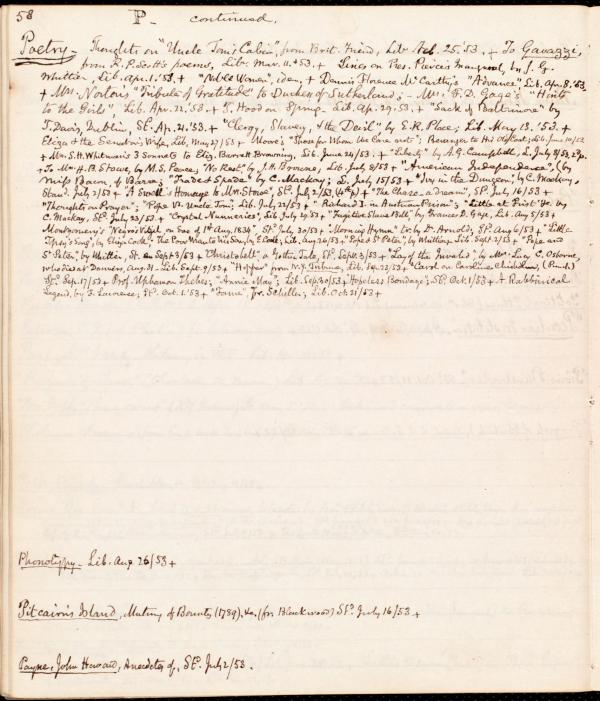 58 P- continued.
Poetry - Thoughts on "Uncle Tom's Cabin", from Brit. Friend, Lib. Feb. 25. '53. + To Gavazzi,
from R. P. Scott's poems, Lib. Mar. 11. '53. + Lines on Pres. Pierce's Inaugural, by J. G.
Whittier, Lib. Apr. 1. '53. + "Noble Women", idem, + Dennis Florence McCarthy's "Advance", Lib. Apr. 8. '53.
+ Mrs. Norton's "Tribute of Gratitude" to Duchess of Sutherland; - Mrs. F. D. Gage's - "Hints
to the Girls", Lib. Apr. 22. '53. + T. Hood on Spring - Lib. Apr. 29. 53. + "Sack of Baltimore" by
T. Davis, Dublin, St. Apr. 21. '53. + "Clergy, Slavery, & the Devil" by E. R. Place; Lib. May 13. '53. +
Eliza & the Senator's Wife, Lib. May 27/53 + Moore's "Those for Whom We Care not"; Lib. June 10/53
+ Mrs. S. H. Whitman's 3 Sonnets to Eliz. Barrett Browning, Lib. June 24/53. + "Liberty" by A. G. Campbell, L. July 8/53, 2 p.
+ To Mrs. H. B. Stowe, by M. S. Peace; "No Rest", by J. H. Browne, Lib. July 8/53 + "American Independence", (by
Miss Bacon, of Barre); "Trade & Spade" by C. Mackay; L. July 15/53 + "Joy in the Dungeon", by C. Mackay,
Stand. July 2/53 + "A Small Homage to Mrs. Stowe", St. July 2/53, (4th p.) + "The Chase - a Dream", St. July 16/53 +
"Thoughts on Prayer"; "Pope vs. Uncle Tom", Lib. July 22/53 + "Richard I. in Austrian Prison"; "Little at First" &c. by
C. Mackay, St. July 23/53 + "Crystal Nunneries", Lib. July 29/53 + "Fugitive Slave Bill", by Frances D. Gage, Lib. Aug 5/53 +
Montgomery's "Negro's Vigil, on Eve of 1st Aug. 1834", St. July 30/53 + "Morning Hymn" tr. by Dr. Arnold, St. Aug 6/53 +
Gipsy's Song", by Eliza Cook; The Poor Man to his Son, by E. Cook; Lib. Aug 26/53 + "Pope & St. Peter", by Whittier, Lib. Sept 2/53 + "Pope and
St. Peter", by Whittier, St. Sept 3/53 + "Christabell" a Gothic Tale, St. Sept. 3/53 + "Lay of the Invalid" by Mrs. Lucy C. Osborne,
who died at Danvers, Aug. 31 - Lib. Sept. 9/53 + "Hopper" from N.Y. Tribune, Lib. Sep. 23/53 + "Carol on Caroline Chisholm, (Punch)
St. Sep. 17/53 + Prof. Upham on Thebes; "Annie May"; Lib. Sep. 30/53 + Hopeless Bondage; St. Oct. 1/53 + A Rabbinical
Legend, by J. Lawrence; St. Oct. 1. '53 + "Fame", fr. Schiller; Lib. Oct 21/53 +
Phonotypy - Lib. Aug 26/53 +
Pitcairn's Island, Mutiny of Bounty (1789), &c. (fr. Blackwood) St. July 16/53 +
Payne, John Howard, Anecdotes of, St. July 2/53.